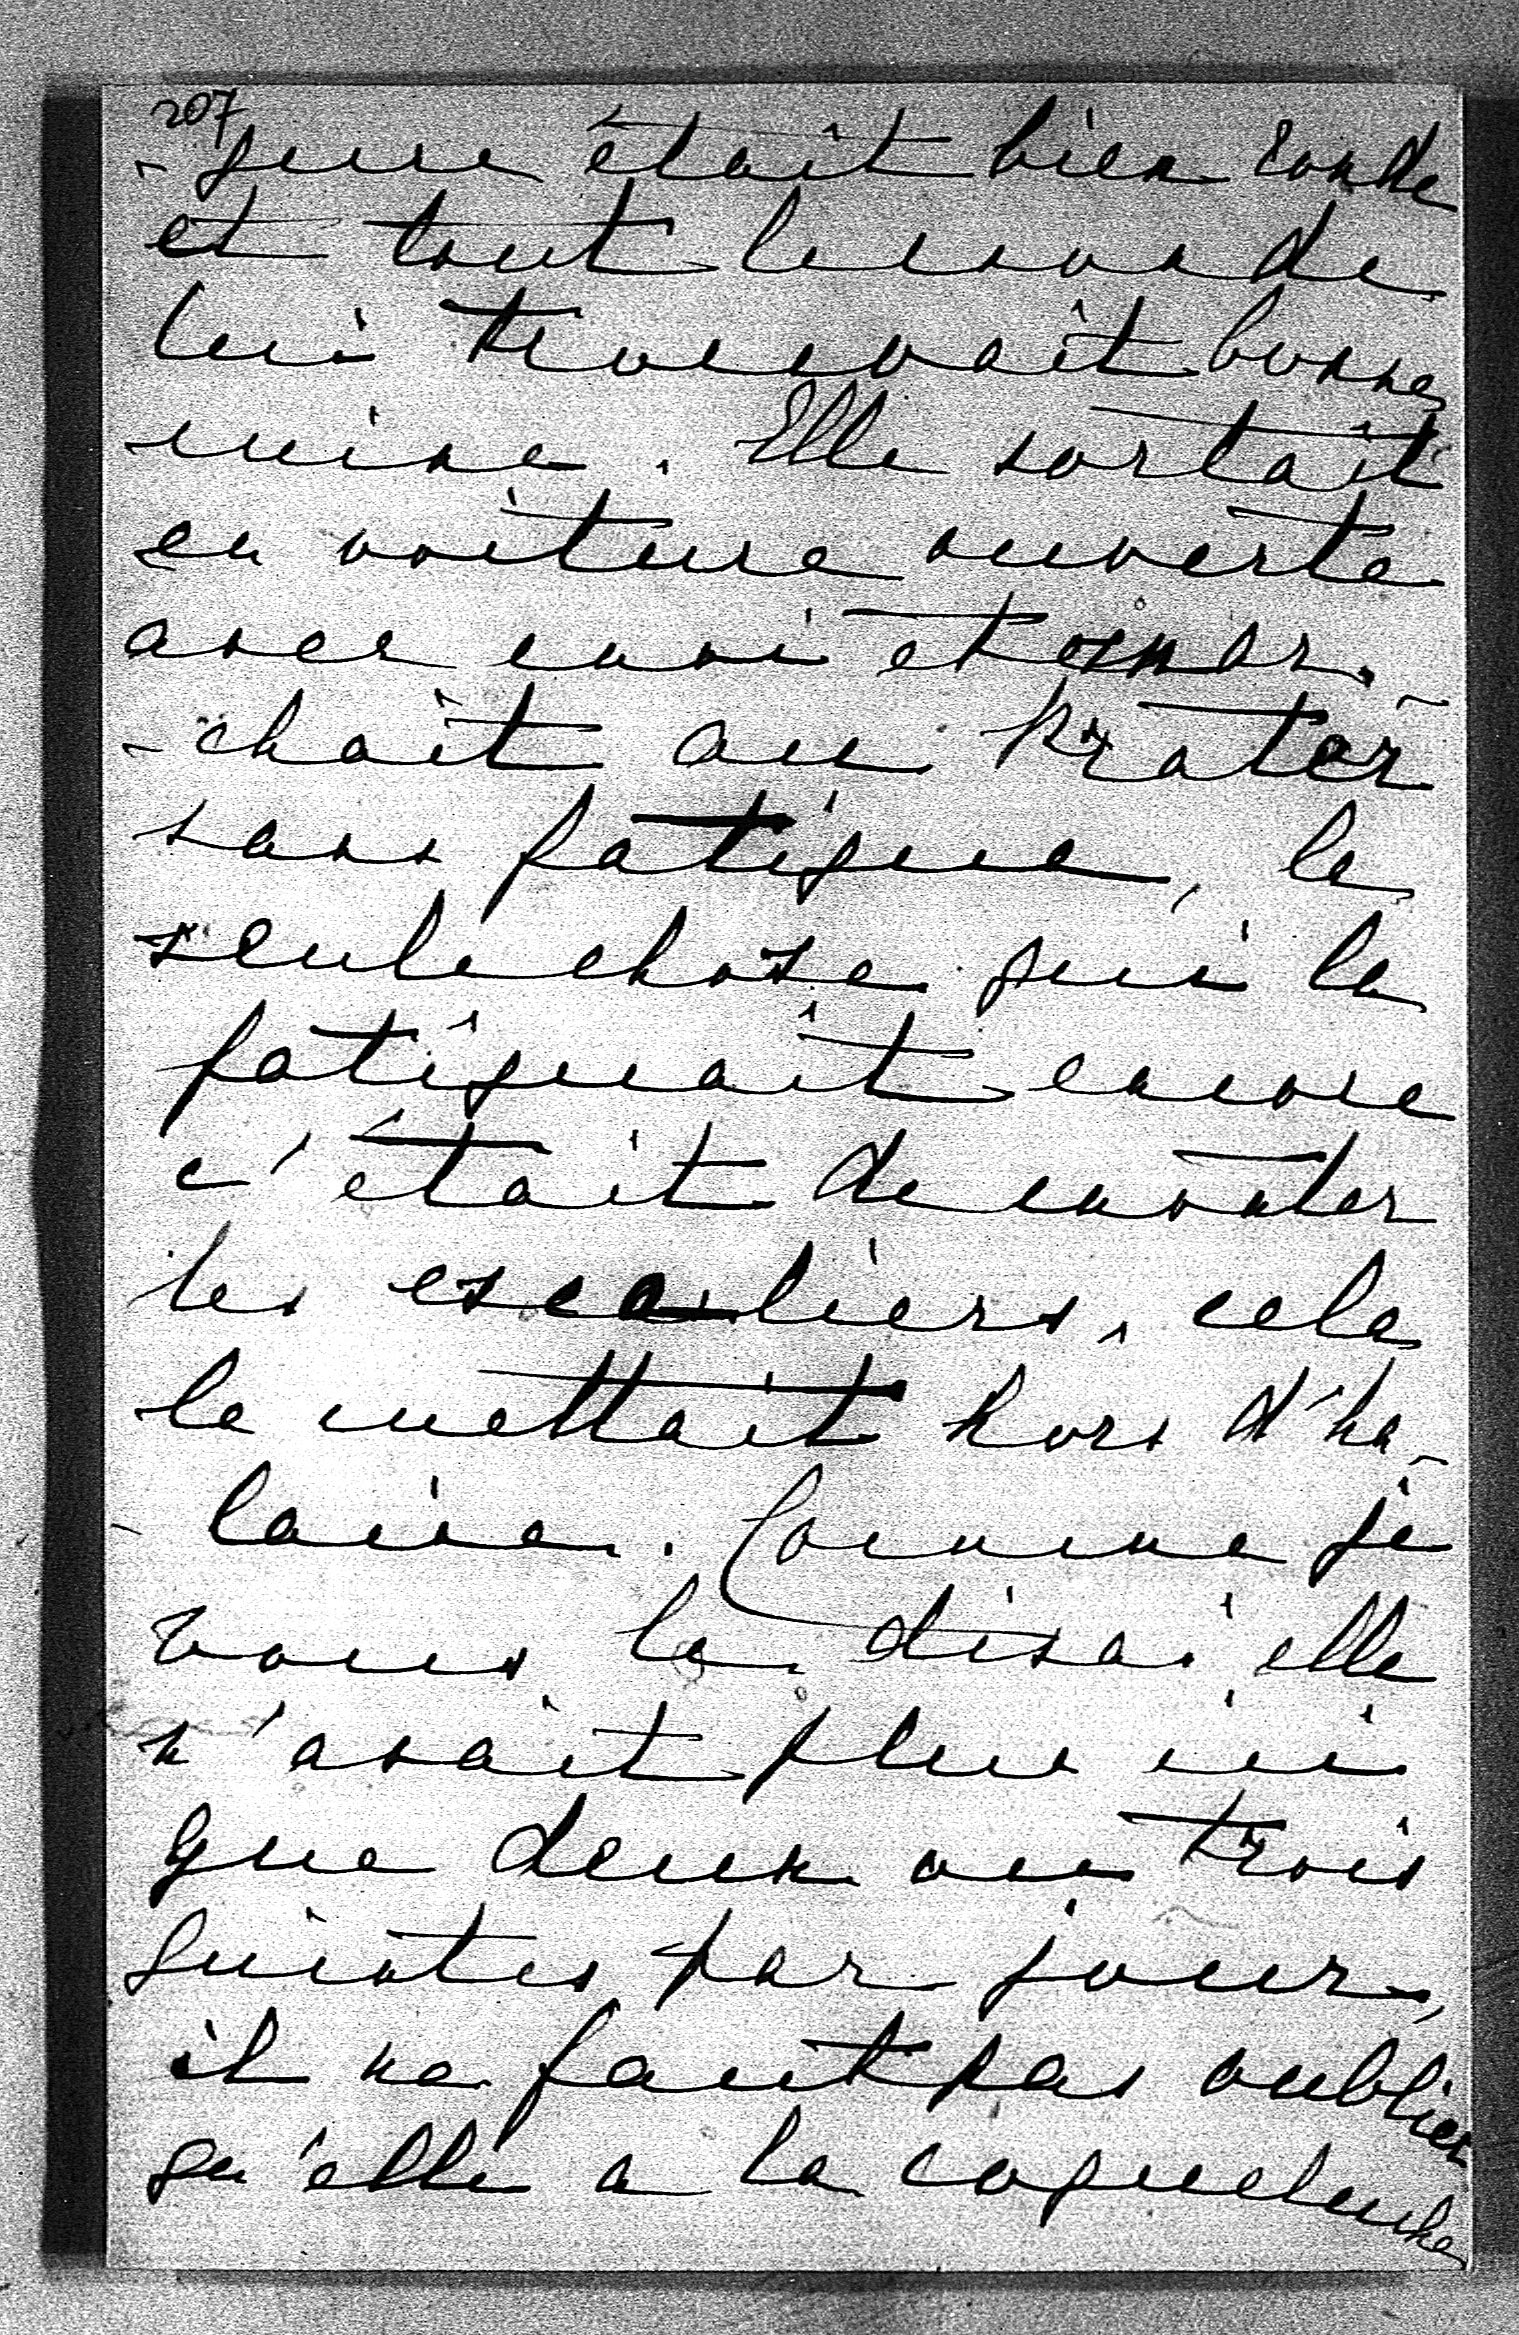 207
-gure était bien ronde
et tout le monde
lui trouvait bonne
mine. Elle sortait
en voiture ouverte
avec moi et mar-
-chait au Prater
sans fatigue, la
seule chose qui la
fatiguait encore
c'était de monter
les escaliers, cela
la mettait hors d'ha-
-laine. Comme je
vous le disai elle
n'avait plus ici
que deux ou trois
quintes par jour,
il ne faut pas oublier
qu'elle a la coqueluche